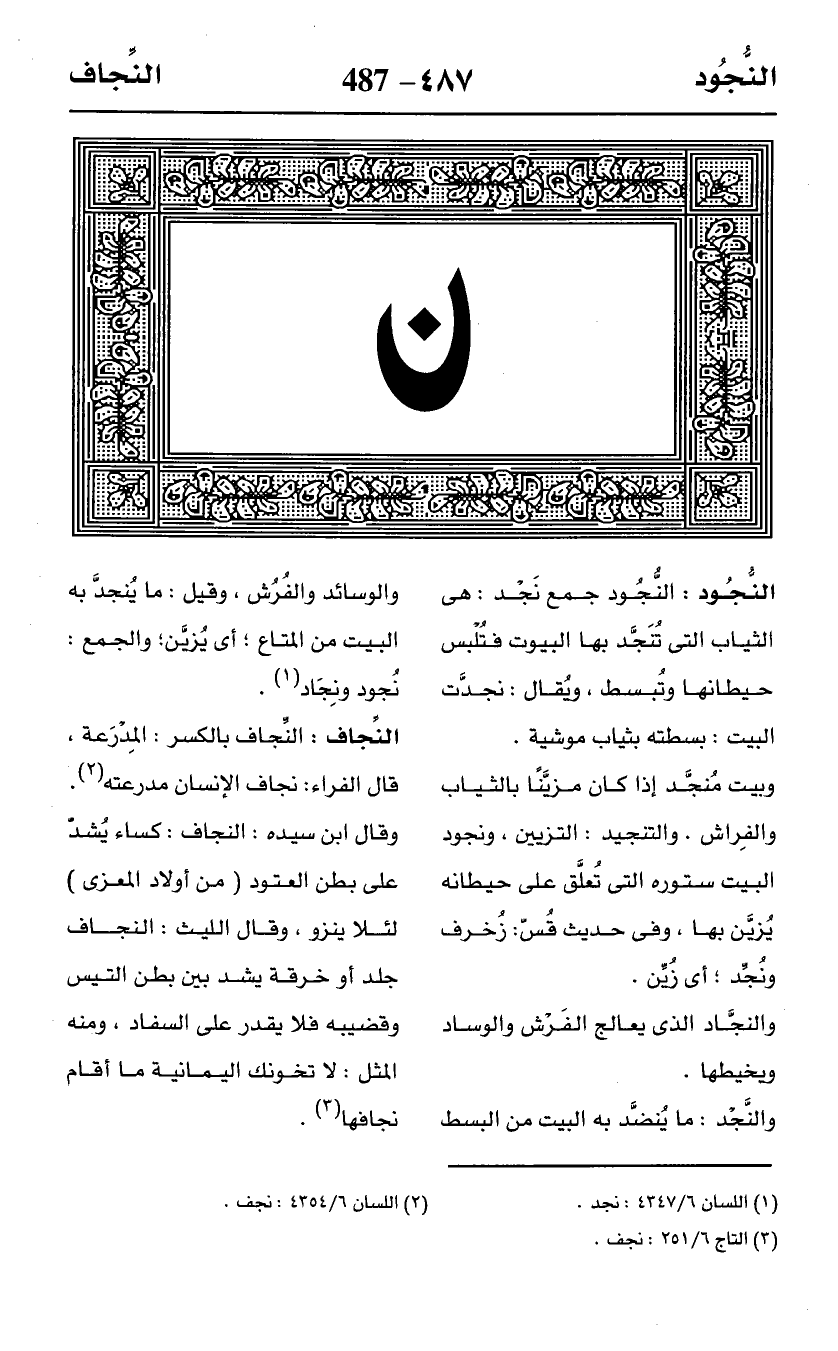 النُّجُود
٤٨٧ – 487
النِّجاف
ن
النُّجُـود : النُّجُـود جـمـع نَجْـد : هى
الثياب التى تُنَجَّد بهـا البيوت فـتُلْبس
حيطانهـا وتُبـسط ، ويُقـال : نجـدَّت
البيت : بسطته بثياب موشية .
وبيت مُنجَّـد إذا كـان مـزيَّنًا بالثـيـاب
والفِراش . والتنجيد : التـزيين ، ونجود
البيت ستوره التى تُعلَّق على حيطانه
يُزيَّن بهـا ، وفى حديث قُسّ: زُخـرف
ونُجِّد ؛ أى زُيِّن .
والنجَّـاد الذى يعـالج الفَـرْش والوسـاد
ويخيطها .
والنَّجْد : ما يُنضَّد به البيت من البسط
والوسائد والفُرُش ، وقيل : ما يُنجدَّ به
البيت من المتاع ؛ أى يُزيَّن؛ والجمع :
نُجود ونِجَاد(١) .
النِّجاف : النِّجاف بالكسر : المِدْرَعة ،
قال الفراء: نجاف الإنسان مدرعته(٢).
وقال ابن سيده : النجاف : كساء يُشدّ
على بطن العتود ( من أولاد المعزى )
لئـلا ينزو ، وقـال الليث : النجـاف
جلد أو خرقـة يشـد بين بطن التـيس
وقضيبه فلا يقدر على السفاد ، ومنه
المثل : لا تخـونك اليـمـانيـة مـا أقـام
نجافها(٣) .
(١) اللسان ٤٣٤٧/٦ : نجد .
(٢) اللسان ٤٣٥٤/٦ : نجف .
(٣) التاج ٢٥١/٦ : نجف .